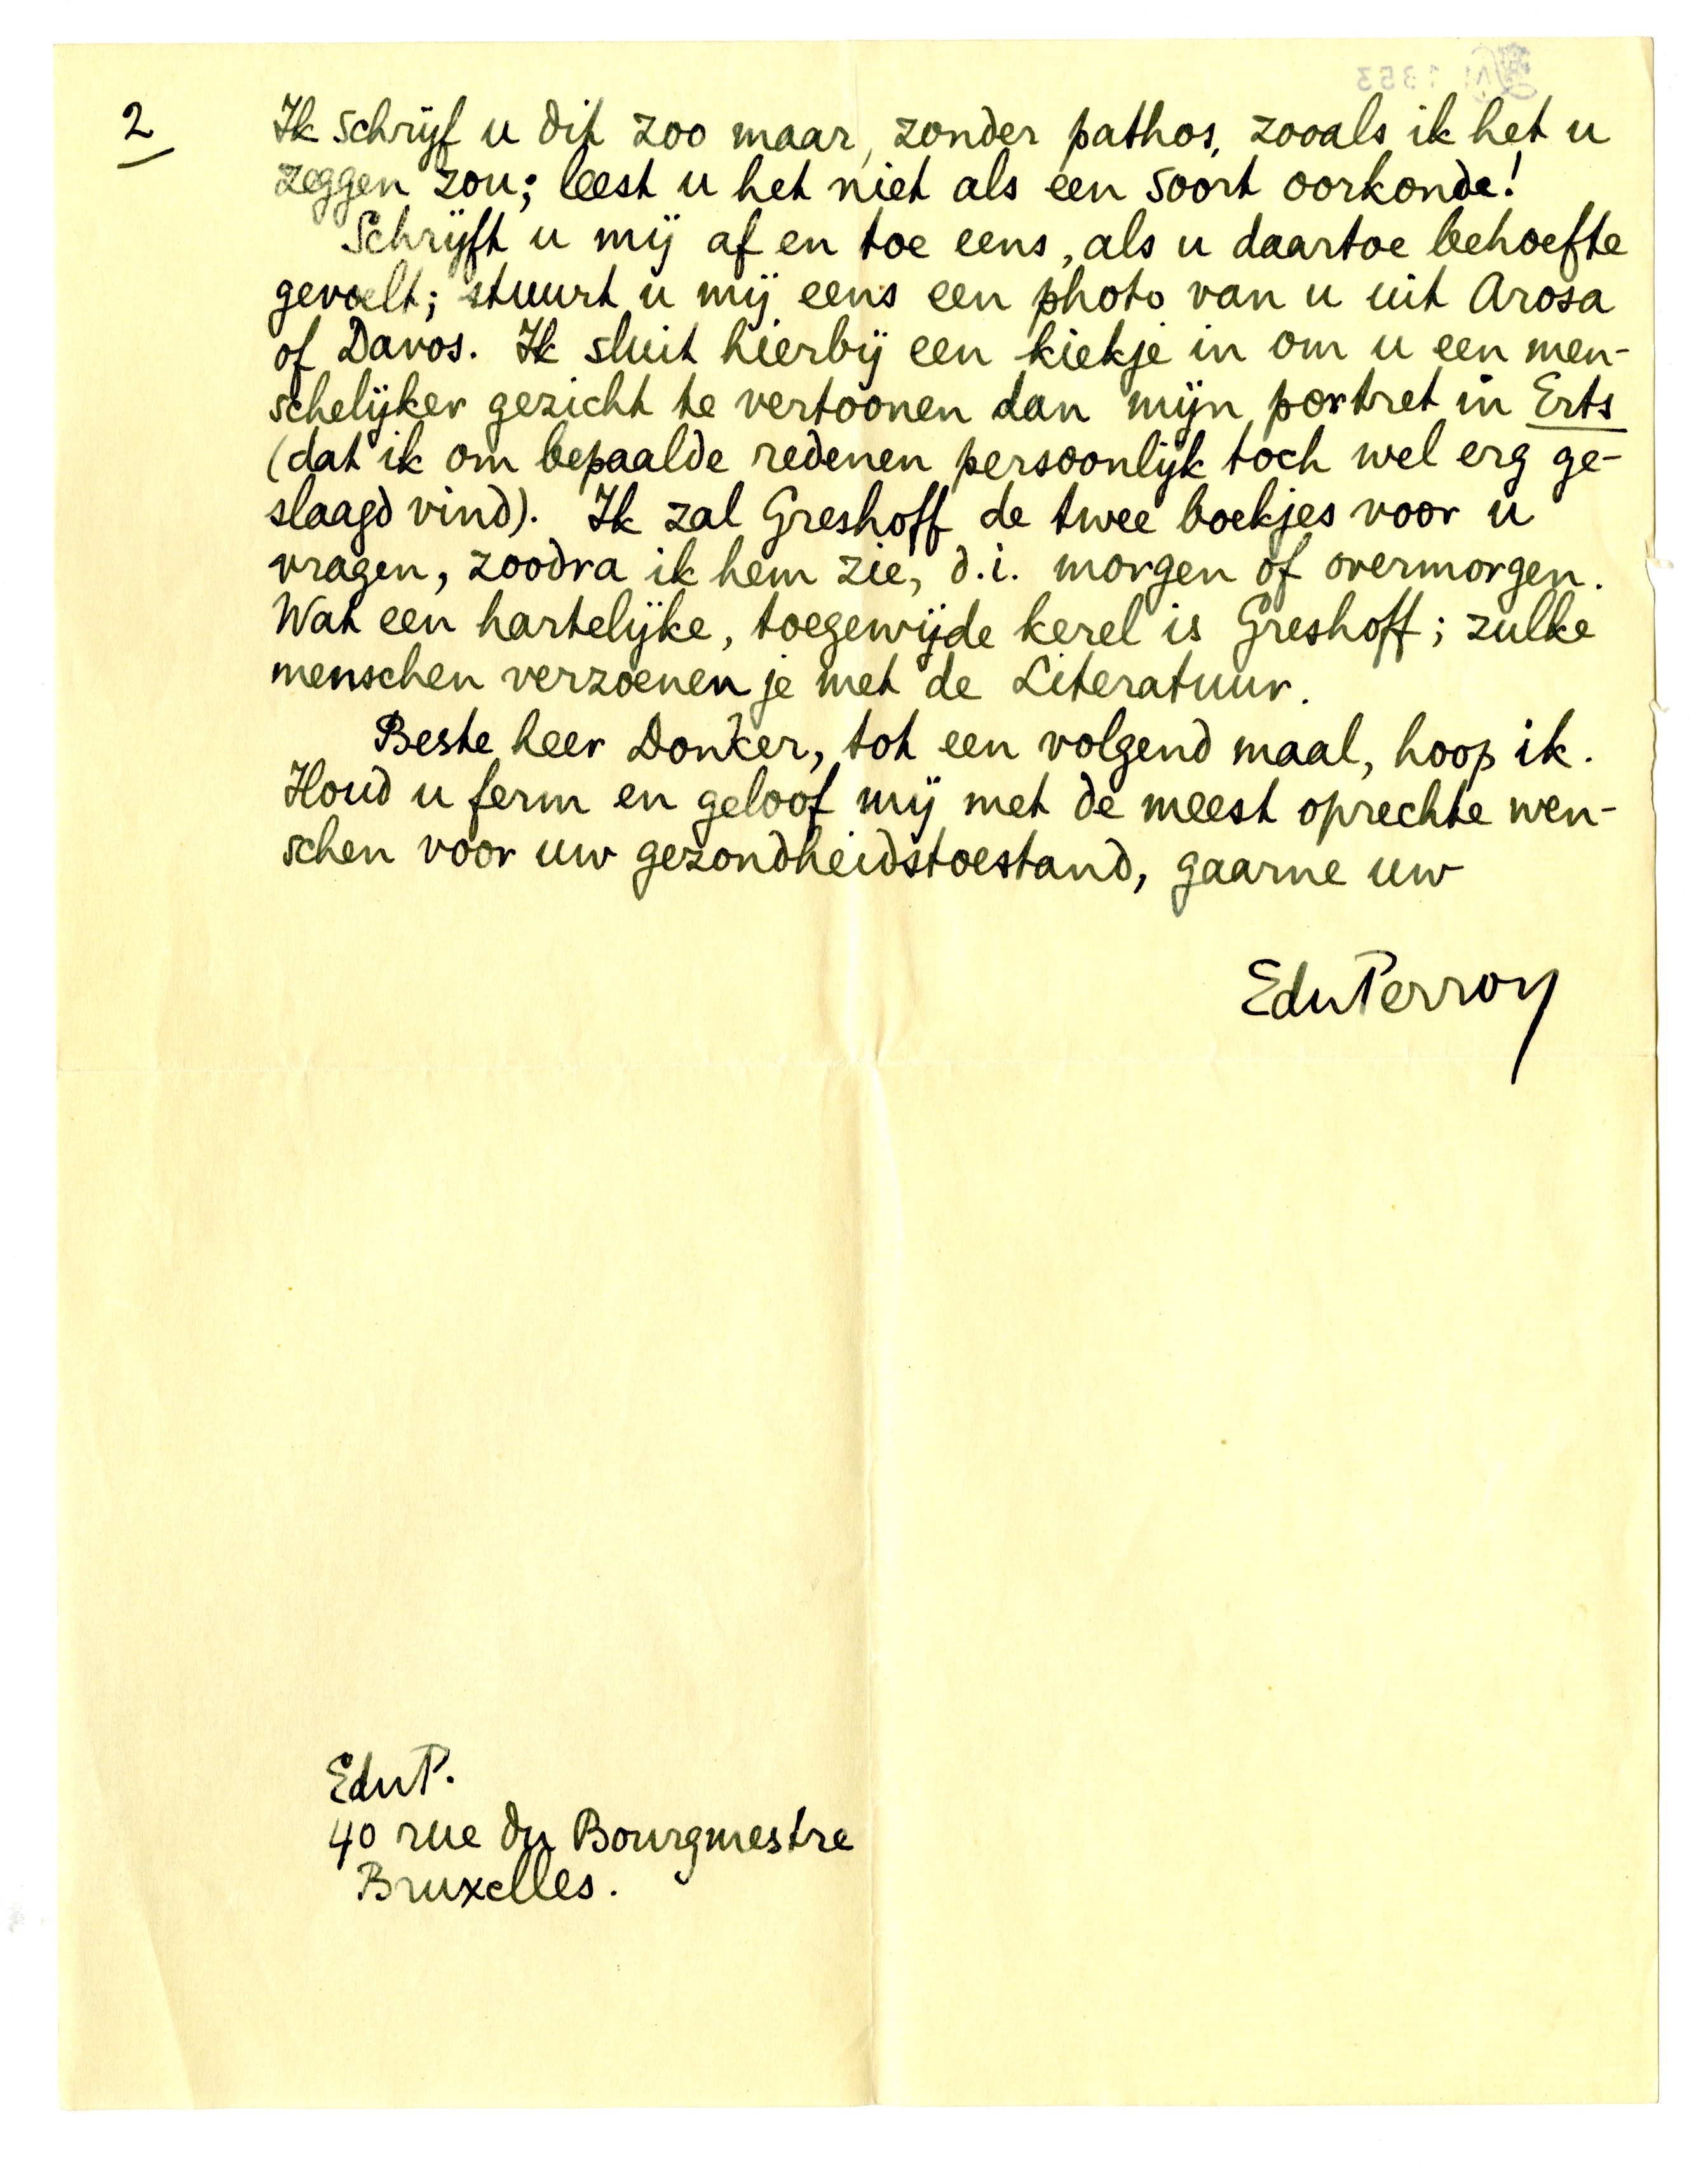 2
Ik schrijf u dit zoo maar, zonder pathos, zooals ik het u
zeggen zou; leest u het niet als een soort oorkonde!
Schrijft u mij af en toe eens, als u daartoe behoefte
gevoelt; stuurt u mij eens een photo van u uit Arosa
of Davos. Ik sluit hierbij een kiekje in om u een men-
schelijker gezicht te vertoonen dan mijn portret in Erts
(dat ik om bepaalde redenen persoonlijk toch wel erg ge-
slaagd vind). Ik zal Greshoff de twee boekjes voor u
vragen, zoodra ik hem zie, d.i. morgen of overmorgen.
Wat een hartelijke, toegewijde kerel is Greshoff; zulke
menschen verzoenen je met de Literatuur.
Beste heer Donker, tot een volgend maal, hoop ik.
Houd u ferm en geloof mij met de meest oprechte wen-
schen voor uw gezondheidstoestand, gaarne uw
EduPerron
EduP.
40 rue du Bourgmestre
Bruxelles.